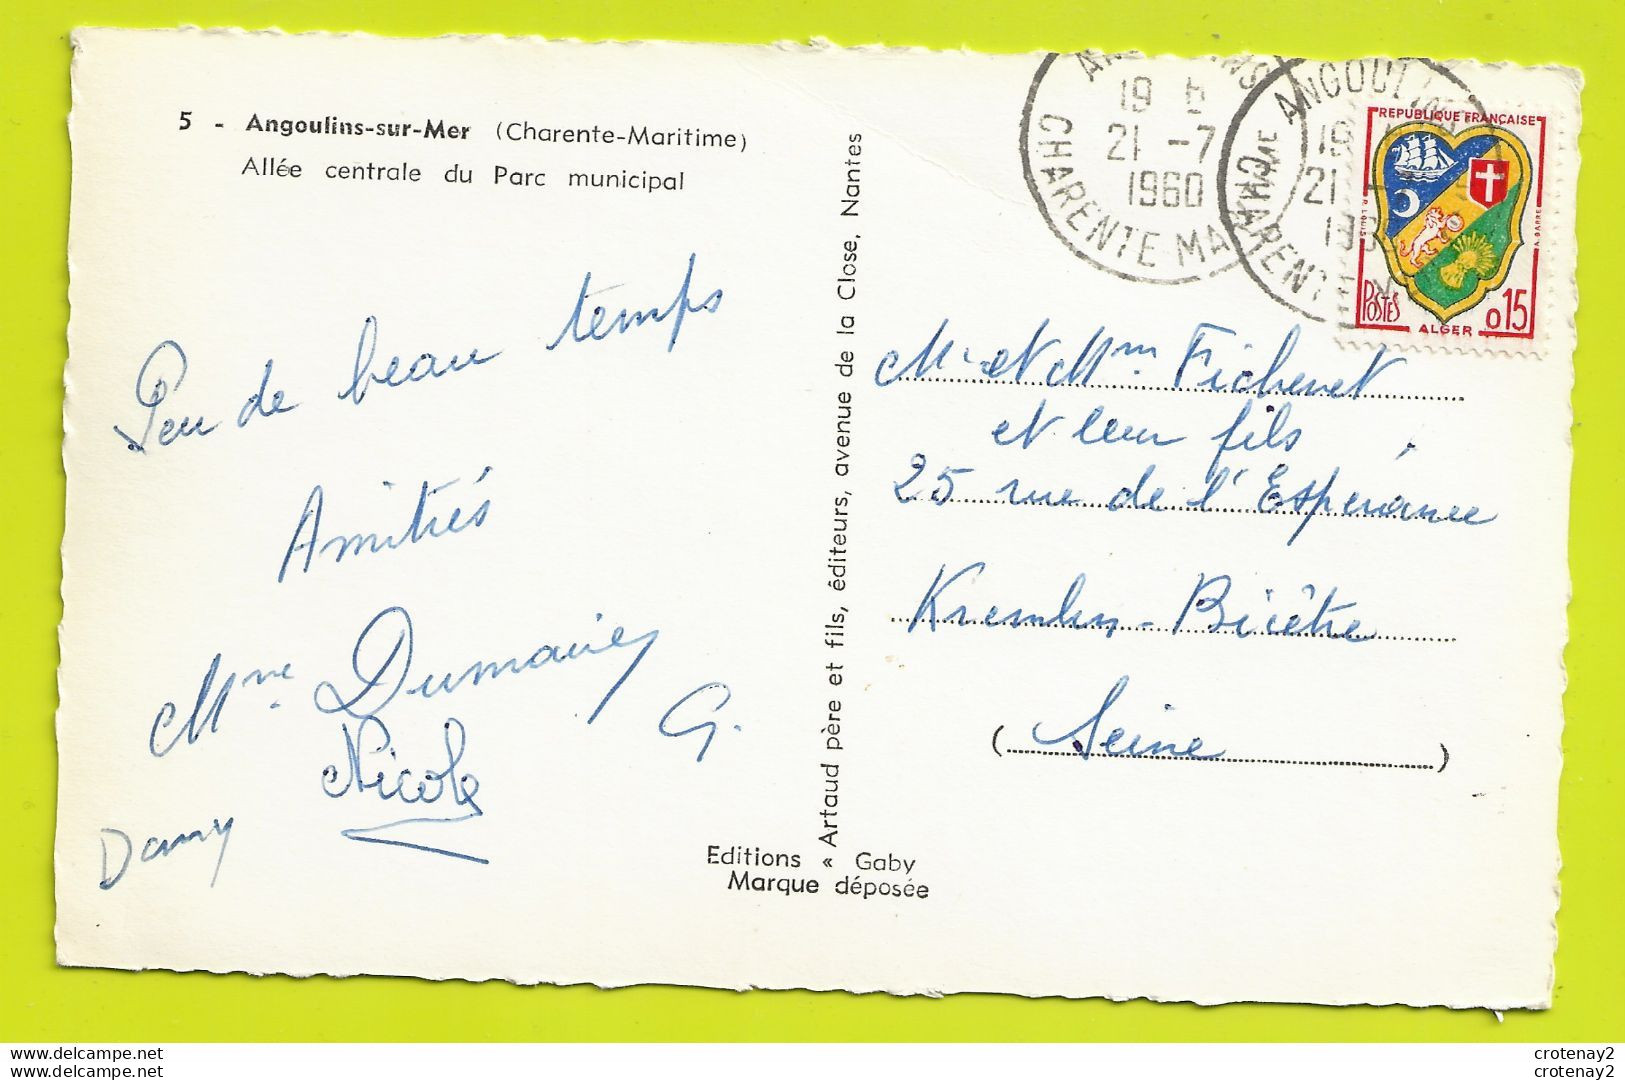 5 - Angoulins-sur-Mer (Charente-Maritime)
Allée centrale du Parc municipal
Peu de beau temps
Amitiés
Mme Dumaine G.
Nicole
Damy
Editions « Gaby
Marque déposée
Artaud père et fils, éditeurs, avenue de la Close, Nantes
19
21 -7
1960
CHARENTE MARme
ANGOULINS
19
21
CHARENTE
REPUBLIQUE FRANÇAISE
POSTES
ALGER
0,15
Mr et Mm Fichenet
et leur fils
25 rue de l'Espérance
Kremlin-Bicêtre
(Seine)
www.delcampe.net
www.delcampe.net
crotenay2
crotenay2